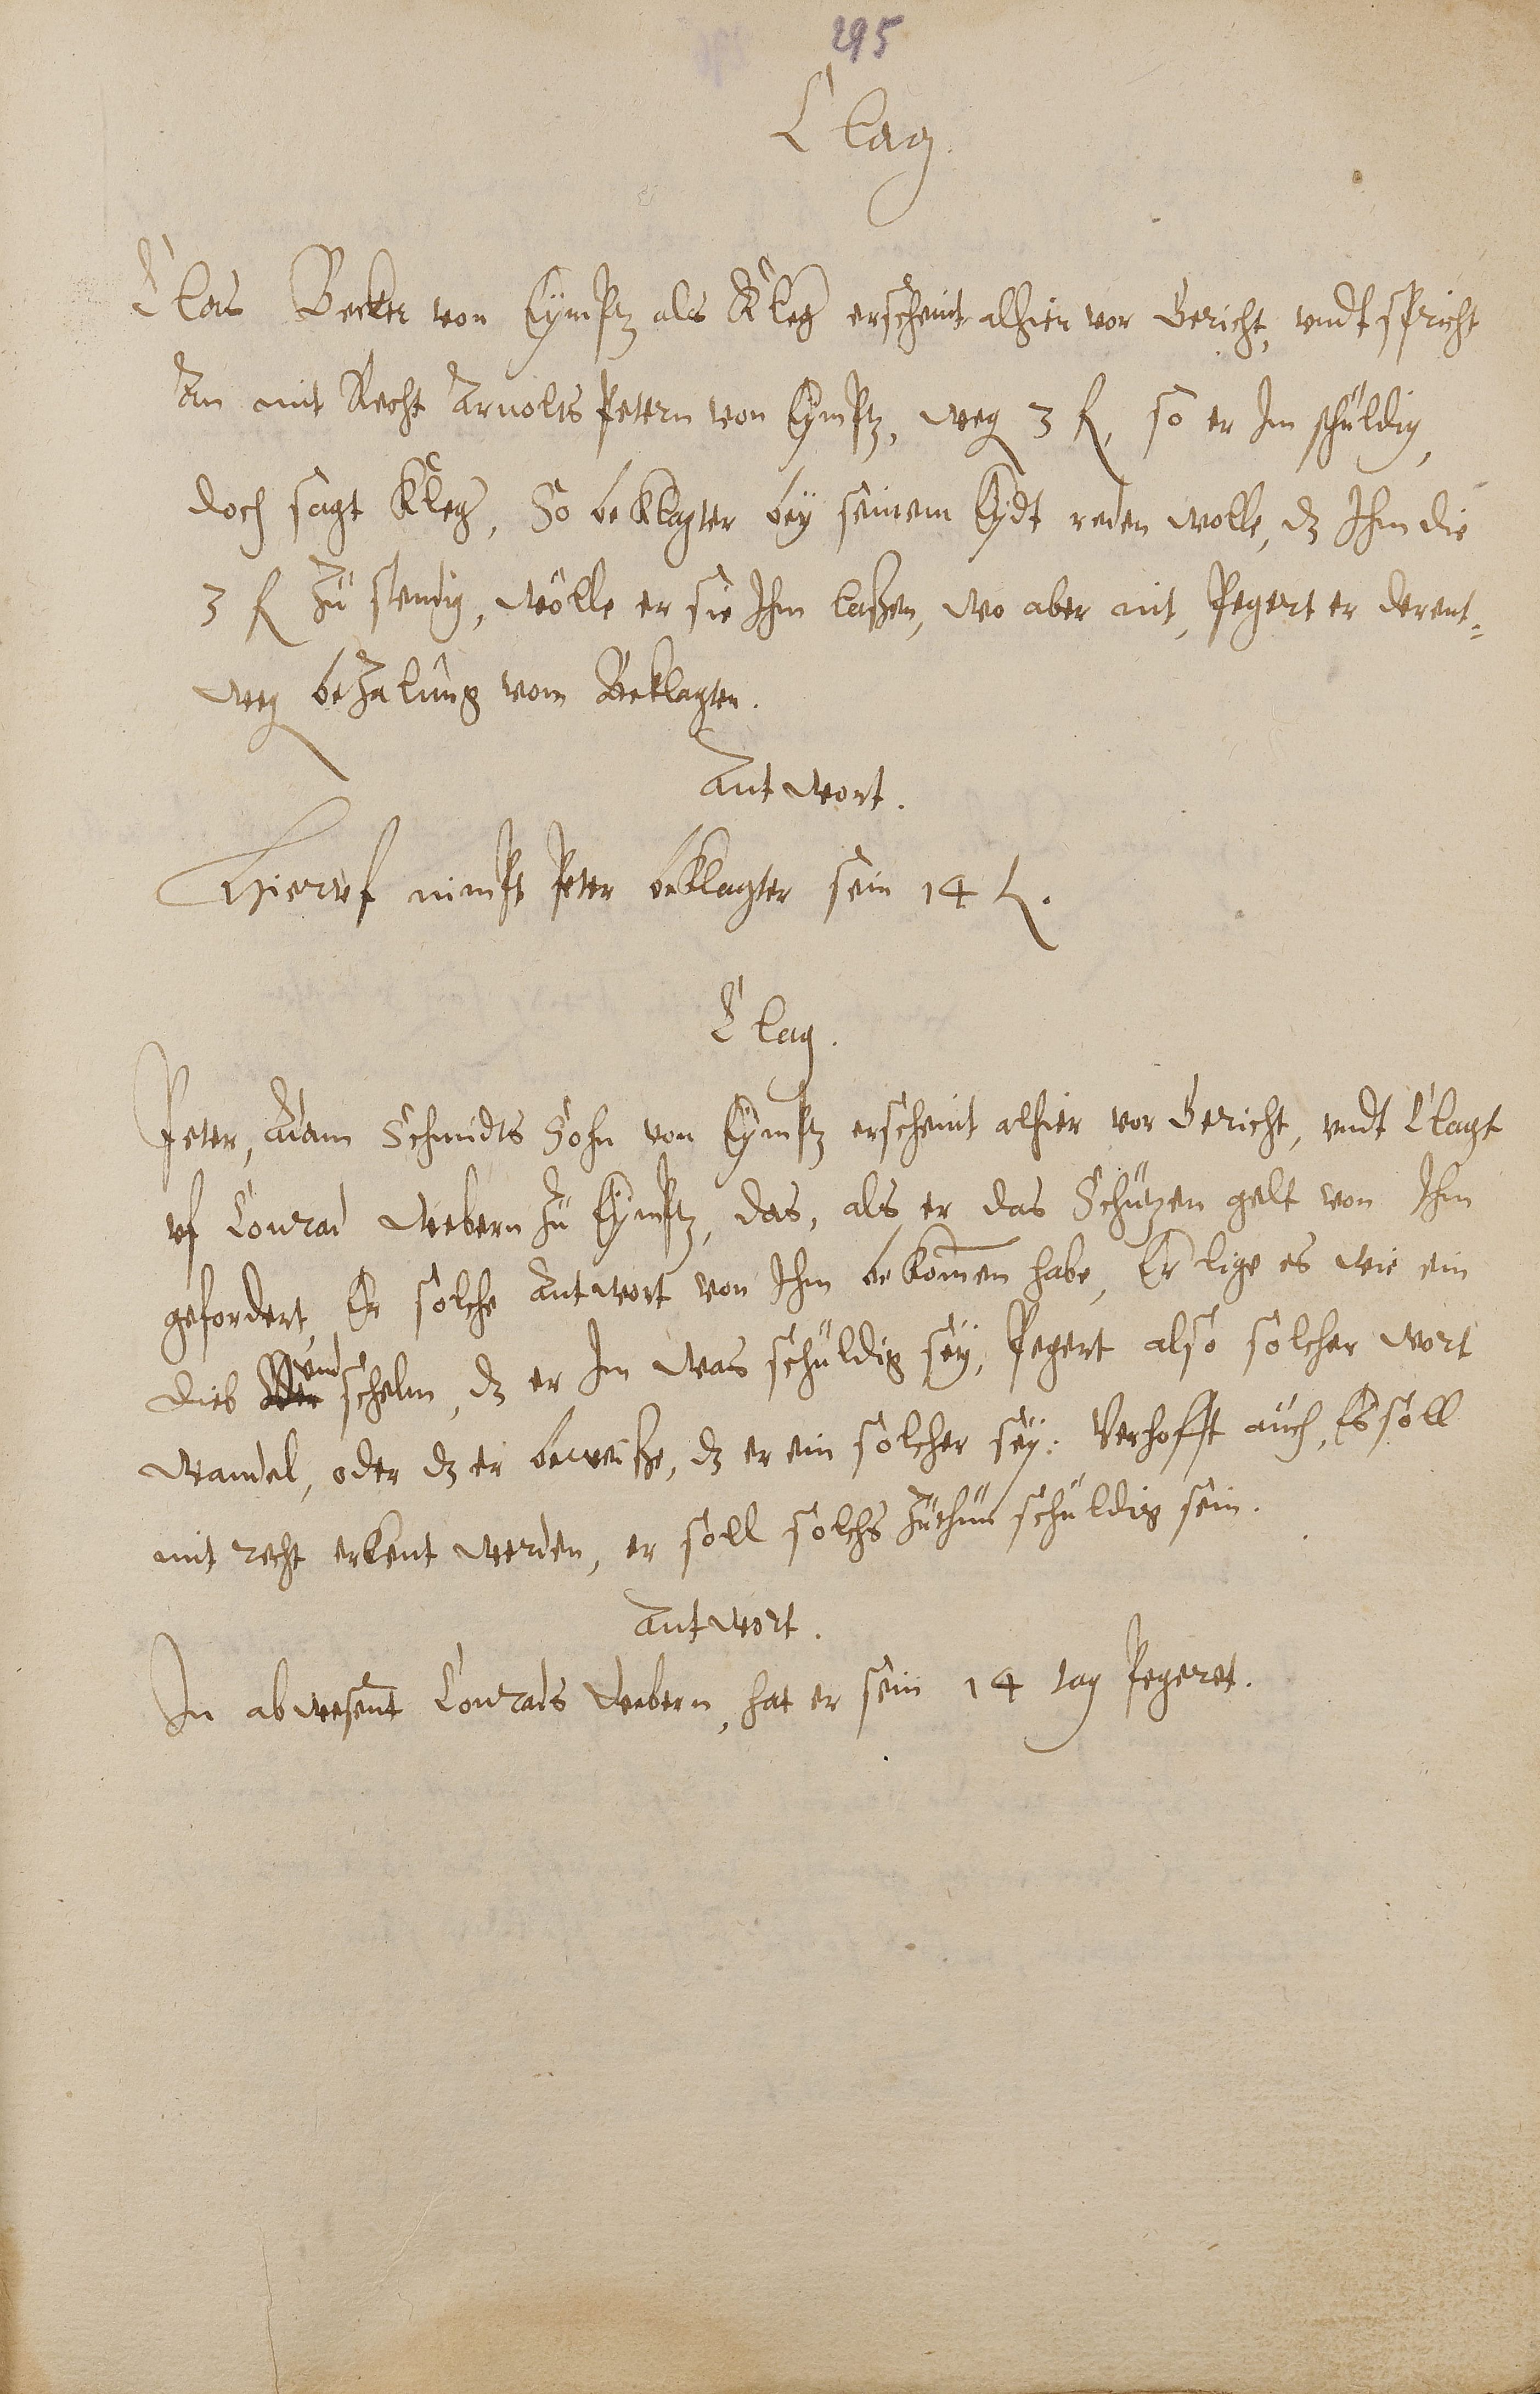 295
Clag.
Clos Becker von Cÿmptz als Kleg erscheint alhier vor Gericht, vndt spricht
An mit Recht Arnolts Petern von Cÿmptz, weg 3 fl, so er Im schuldig,
doch sagt Kleg, So beklagter beÿ seinem Eÿdt reden wolle, dz Ihm die
3 fl zu stendig, wölle er sie Ihm laßen, wo aber nit, Pegert er derent-
weg bezalung vom Beklagten.
Antwort.
Hieruf nimpt Peter beklagter sein 14 t.
Clag.
Peter, Adam Schmidts Sohn von Cÿmptz erscheint alhier vor Gericht, vndt Clagt
vf Conrad Webern zu Cÿmptz, das, als er das Schützen gelt von Ihm
gefordert, Er solche Antwort von Ihm bekomen habe, Er lige es wie ein
dieb vnd schelm, dz er Im was schuldig seÿ, Pegert also solcher wort
wandel, oder dz er beweiße, dz er ein solcher seÿ. Verhofft auch, Es soll
mit recht erkent werden, er soll solchs zuthun schuldig sein.
Antwort.
In abwesent Conrads Webern, hat er sein 14 tag Pegeret.